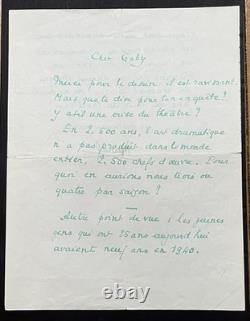 Cher Gaby
Merci pour le dessin il est ravissant.
Mais que te dire pour ton enquête ?
Y a t il une crise du théâtre ?
En 2.500 ans, l'art dramatique
n a pas produit dans le monde
entier, 2.500 chefs d'œuvre. Pour
quoi en aurions nous trois ou
quatre par saison ?
Autre point de vue : les jeunes
gens qui ont 25 ans aujourd'hui
avaient neuf ans en 1940.
© 123rf.com